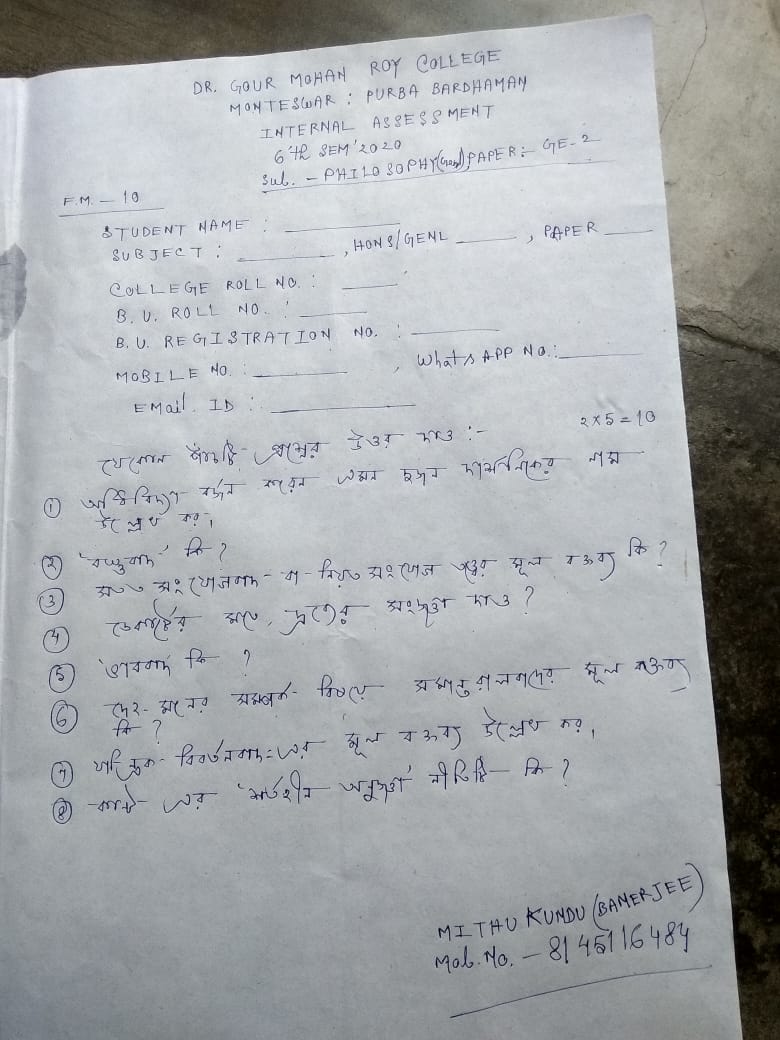 DR. GOUR MOHAN ROY COLLEGE
MONTESWAR : PURBA BARDHAMAN
INTERNAL ASSESSMENT
6th SEM'2020
Sub. - PHILOSOPHY(Genl), PAPER:- GE-2
F.M. - 10
STUDENT NAME : ________
SUBJECT : ________, HONS/GENL ____, PAPER ____
COLLEGE ROLL NO. : ____
B. U. ROLL NO. : ____
B. U. REGISTRATION NO. : ____
MOBILE NO. : ____, WhatsAPP NO.: ____
EMail. ID : ____
যেকোন পাঁচটি প্রশ্নের উত্তর দাও :- 2×5=10
① অধিবিদ্যা বর্জন করেন এমন দুজন দার্শনিকের নাম
উল্লেখ কর।
② 'বস্তুবাদ' কি?
③ সতত সংযোগবাদ বা নিয়ত সংযোগ তত্ত্বের মূল বক্তব্য কি?
④ ডেকার্টের মতে, দ্রব্যের সংজ্ঞা দাও?
⑤ 'ভাববাদ' কি ?
⑥ দেহ-মনের সম্পর্ক বিষয়ে সমান্তরালবাদের মূল বক্তব্য
কি ?
⑦ যান্ত্রিক বিবর্তনবাদ-এর মূল বক্তব্য উল্লেখ কর।
⑧ কান্ট এর 'শর্তহীন অনুজ্ঞা' নীতিটি কি ?
MITHU KUNDU (BANERJEE)
Mob. No. - 8145116484